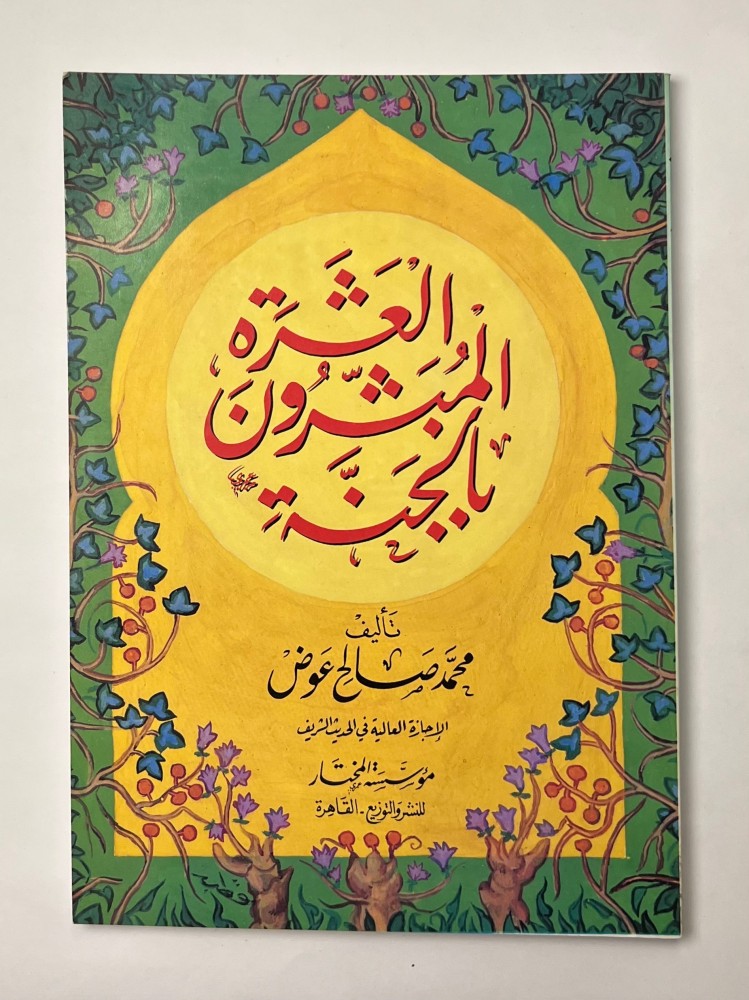 العَشَرَة
المُبَشَّرُونَ
بِالْجَنَّةِ
تَأليف
محمّد صَالِح عَوَض
الإجازة العالية في الحديث الشريف
مؤسّسَة المختار
للنشر والتوزيع - القَاهِرة